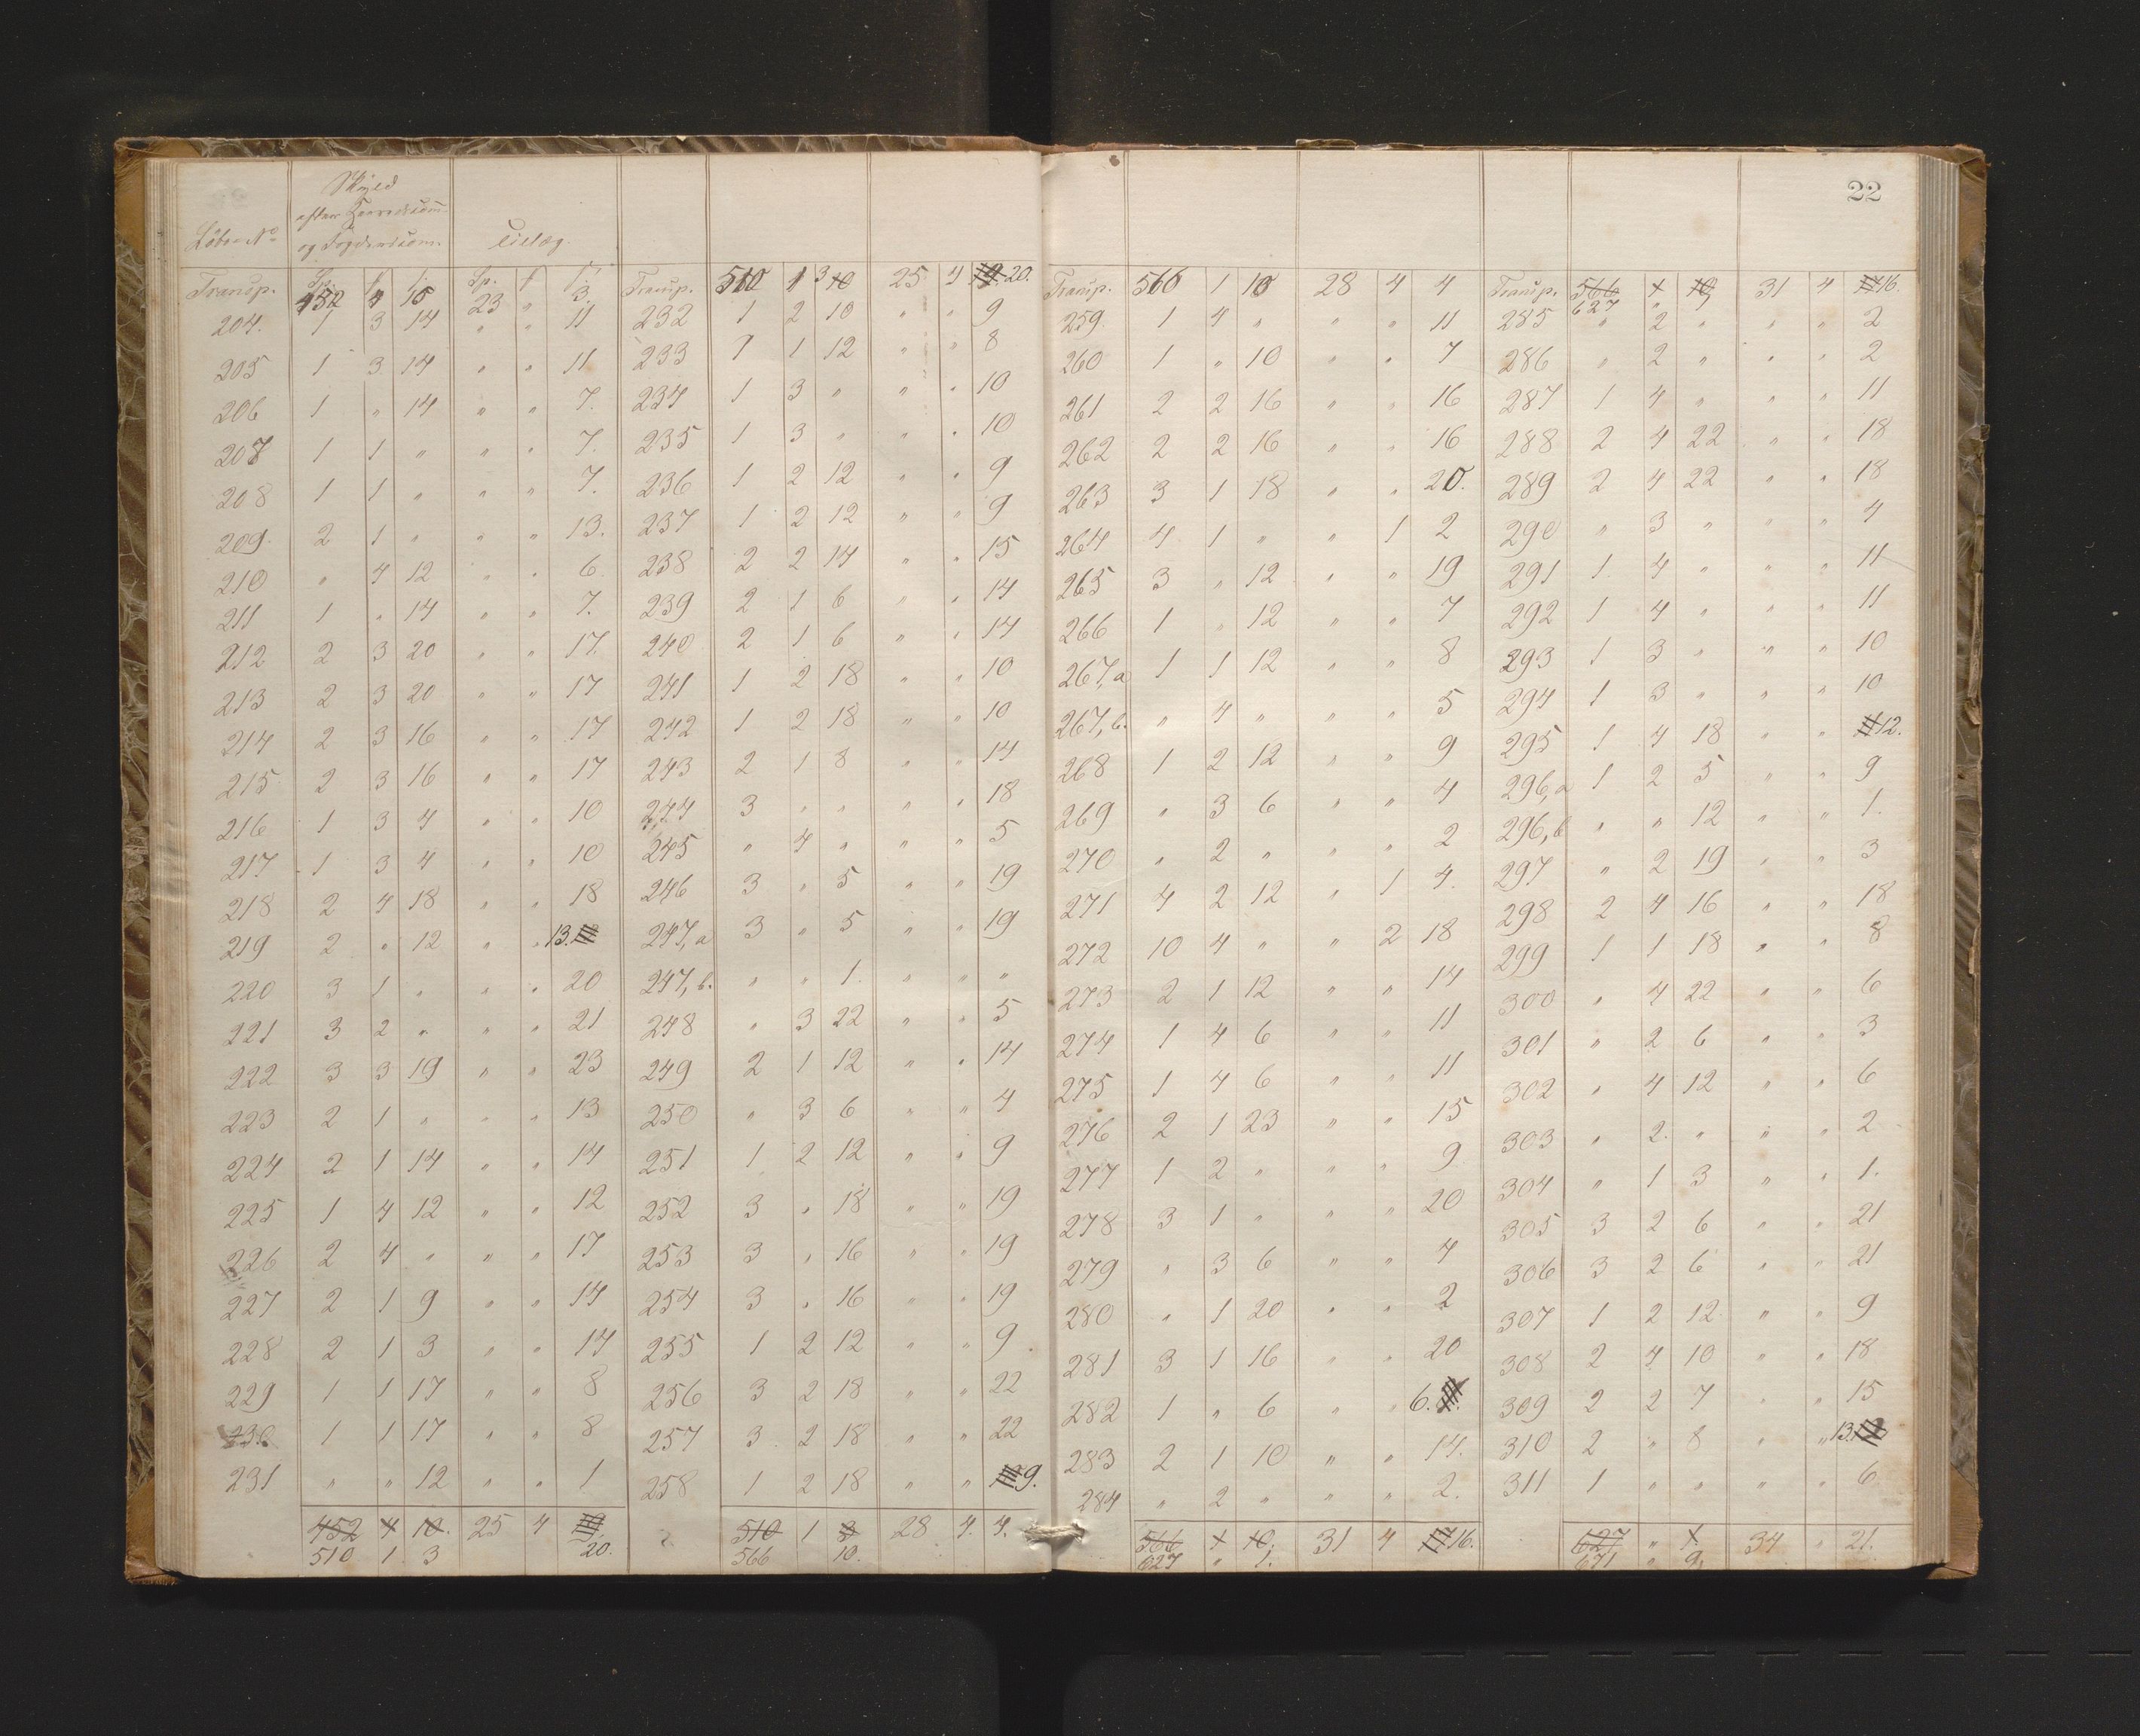 22
Løbe-No
Skyld
efter Herredscom-
og Fogdericom.
Tillæg.
Transp. 452 4 10 23 " 3.
204. 1 3 14 " " 11
205 1 3 14 " " 11
206 1 " 14 " " 7.
207 1 1 " " " 7.
208 1 1 " " " 7.
209. 2 1 " " " 13.
210 " 4 12 " " 6
211 1 " 14 " " 7.
212 2 3 20 " " 17.
213 2 3 20 " " 17
214 2 3 16 " " 17
215 2 3 16 " " 17
216 1 3 4 " " 10
217 1 3 4 " " 10
218 2 4 18 " " 18
219 2 " 12 " " 13.
220 3 1 " " " 20
221 3 2 " " " 21
222 3 3 19 " " 23
223 2 1 " " " 13
224 2 1 14 " " 14
225 1 4 12 " " 12
226 2 4 " " " 17
227 2 1 9 " " 14
228 2 1 3 " " 14
229 1 1 17 " " 8
230 1 1 17 " " 8
231 " " 12 " " 1
452 4 10. 25 4
510 1 3 20.
Transp. 510 1 3 10 25 4 20.
232 1 2 10 " " 9
233 1 1 12 " " 8
234 1 3 " " " 10
235 1 3 " " " 10
236 1 2 12 " " 9
237 1 2 12 " " 9
238 2 2 14 " " 15
239 2 1 6 " " 14
240 2 1 6 " " 14
241 1 2 18 " " 10
242 1 2 18 " " 10
243 2 1 8 " " 14
244 3 " " " " 18
245 " 4 " " " 5
246 3 " 5 " " 19
247, a 3 " 5 " " 19
247, b. " " 1. " " "
248 " 3 22 " " 5
249 2 1 12 " " 14
250 " 3 6 " " 4
251 1 2 12 " " 9
252 3 " 18 " " 19
253 3 " 16 " " 19
254 3 " 16 " " 19
255 1 2 12 " " 9
256 3 2 18 " " 22
257 3 2 18 " " 22
258 1 2 18 " " 9.
510 1 3 28 4. 4.
566 10.
Transp. 566 1 10 28 4 4
259. 1 4 " " " 11
260 1 " 10 " " 7
261 2 2 16 " " 16
262 2 2 16 " " 16
263 3 1 18 " " 20.
264 4 1 " " 1 2
265 3 " 12 " " 19
266 1 " 12 " " 7
267, a 1 1 12 " " 8
267, b. " 4 " " " 5
268 1 2 12 " " 9
269 " 3 6 " " 4
270 " 2 " " " 2
271 4 2 12 " 1 4.
272 10 4 " " 2 18
273 2 1 12 " " 14
274 1 4 6 " " 11
275 1 4 6 " " 11
276 2 1 23 " " 15
277 1 2 " " " 9
278 3 1 " " " 20
279 " 3 6 " " 4
280 " 1 20 " " 2
281 3 1 16 " " 20
282 1 " 6 " " 6.
283 2 1 10 " " 14.
284 " 2 " " " 2.
566 1 10. 31 4 17 16.
627 " 1.
Transp. 566 1 10 31 4 17 16.
627 "
285 " 2 " " " 2
286 " 2 " " " 2
287 1 4 " " " 11
288 2 4 22 " " 18
289 2 4 22 " " 18
290 " 3 " " " 4
291 1. 4 " " " 11
292 1 4 " " " 11
293 1 3 " " " 10
294 1 3 " " " 10
295 1 4 18 " " 12.
296, a 1 2 5 " " 9
296, b " " 12 " " 1.
297 " 2 19 " " 3
298 2 4 16 " " 18
299 1 1 18 " " 8
300 " 4 22 " " 6
301 " 2 6 " " 3
302 " 4 12 " " 6
303 " 2. " " " 2
304 " 1 3 " " 1.
305 3 2 6 " " 21
306 3 2 6 " " 21
307 1 2 12 " " 9
308 2 4 10 " " 18
309 2 2 7 " " 15
310 2 " 8 " " 13.
311 1 " " " " 6
627 " 1 34 " 21.
671 " 9.